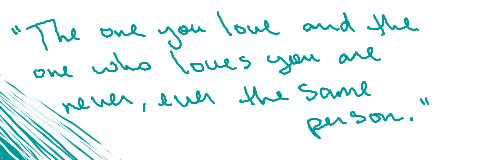 "The one you love and the
one who loves you are
never, ever the same
person."